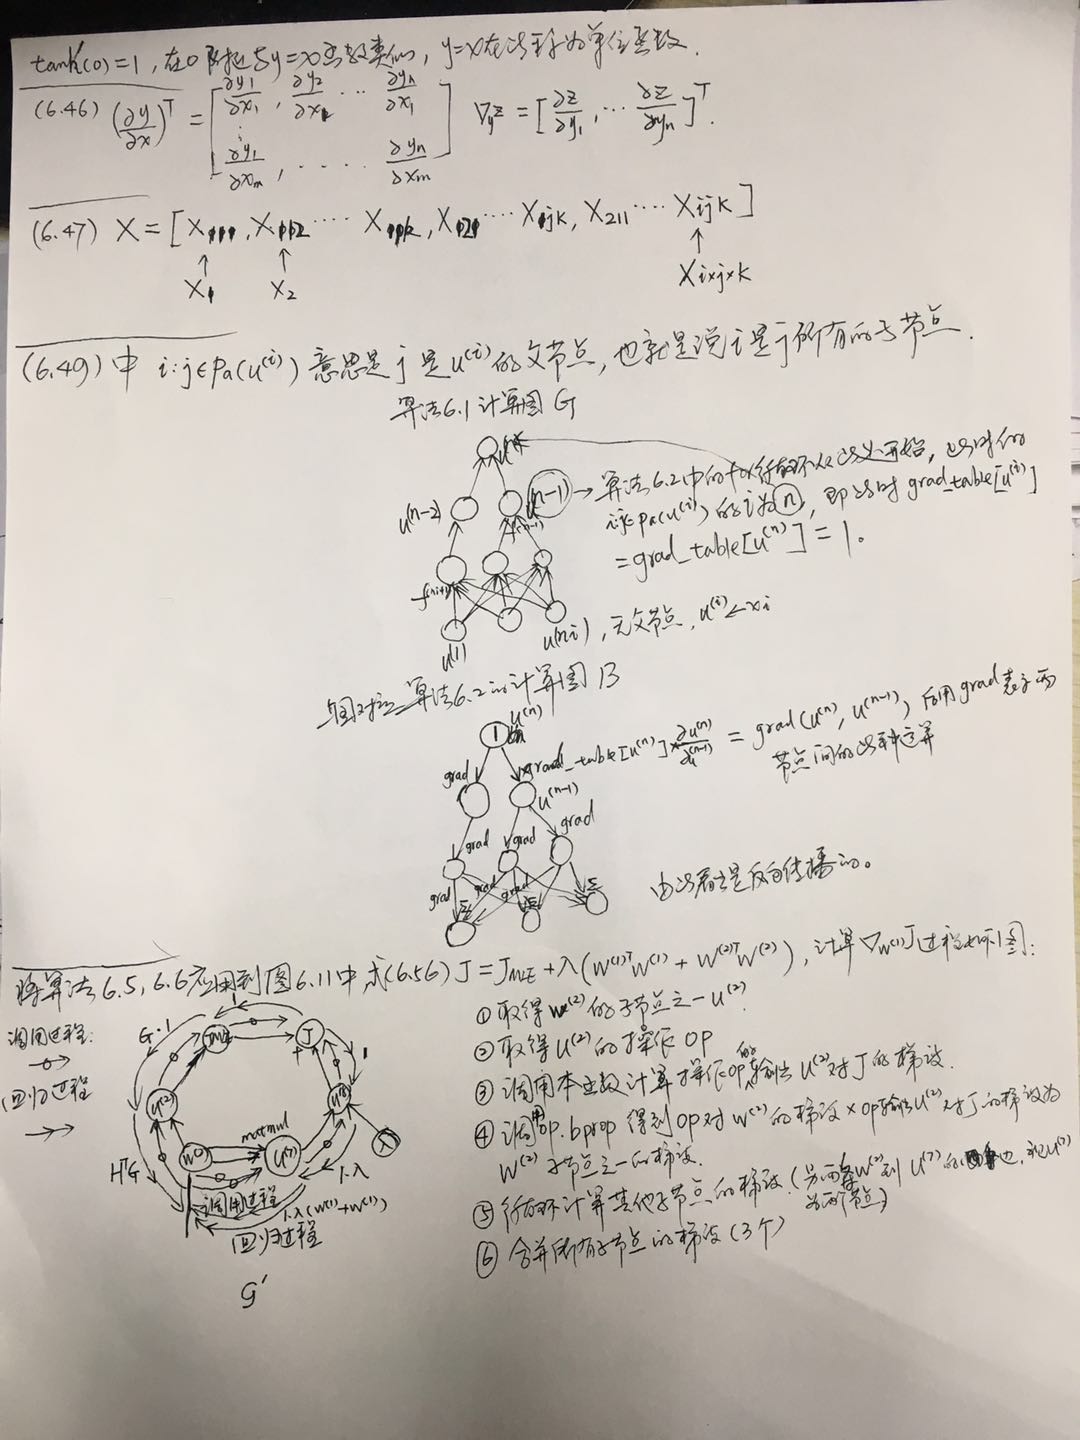 tanh'(0)=1，在0附近与y=x函数类似，y=x在此称为单位函数.
(6.46) (∂y/∂x)^T = [∂y1/∂x1, ∂y2/∂x1 ··· ∂yn/∂x1
⋮
∂y1/∂xm, ····· ∂yn/∂xm] ∇yz = [∂z/∂y1, ··· ∂z/∂yn]^T.
(6.47) X = [X111, X112 ···· X11k, X121 ···· X1jk, X211 ···· Xijk]
↑ ↑ ↑
X1 X2 Xi×j×k
(6.49) 中 i:j∈Pa(u^(i)) 意思是 j 是 u^(i) 的父节点，也就是说 i 是 j 所有的子节点.
算法6.1 计算图 G
u^(n-2) u^(n-1) → 算法6.2中的for循环从此处开始，此时的
i:j∈Pa(u^(i)) 的i为n，即此时 grad_table[u^(i)]
= grad_table[u^(n)] = 1.
u^(1) u^(ni)，无父节点，u^(i)←xi
算法6.2的计算图 B
1 u^(n)
grad grad_table[u^(n)] × ∂u^(n)/∂u^(n-1) = grad(u^(n), u^(n-1))，后用grad表示两
节点间的此种运算
u^(n-1)
grad grad grad
grad grad grad Σ Σ Σ
由此看出是反向传播的。
将算法6.5, 6.6应用到图6.11中，式(6.56) J = J_MLE + λ(W^(1)T W^(1) + W^(2)T W^(2))，计算∇W^(1) J 过程如下图：
调用过程：
回归过程
G·1 J_MLE J 1
u^(2) u^(8)
H^T G W^(2) matmul u^(7) 1·λ λ
调用过程 1·λ(W^(1)+W^(1))
回归过程
G'
① 取得 W^(2) 的子节点之一 u^(2)
② 取得 u^(2) 的操作 op
③ 调用本函数计算操作op的输出 u^(2) 对 J 的梯度.
④ 调用op.bprop 得到 op 对 W^(2) 的梯度 × op输出u^(2) 对 J 的梯度为
W^(2) 子节点之一的梯度.
⑤ 循环计算其他子节点的梯度.(另两条W^(2)到 u^(7)
为两个节点)
⑥ 合并所有子节点的梯度 (3个)